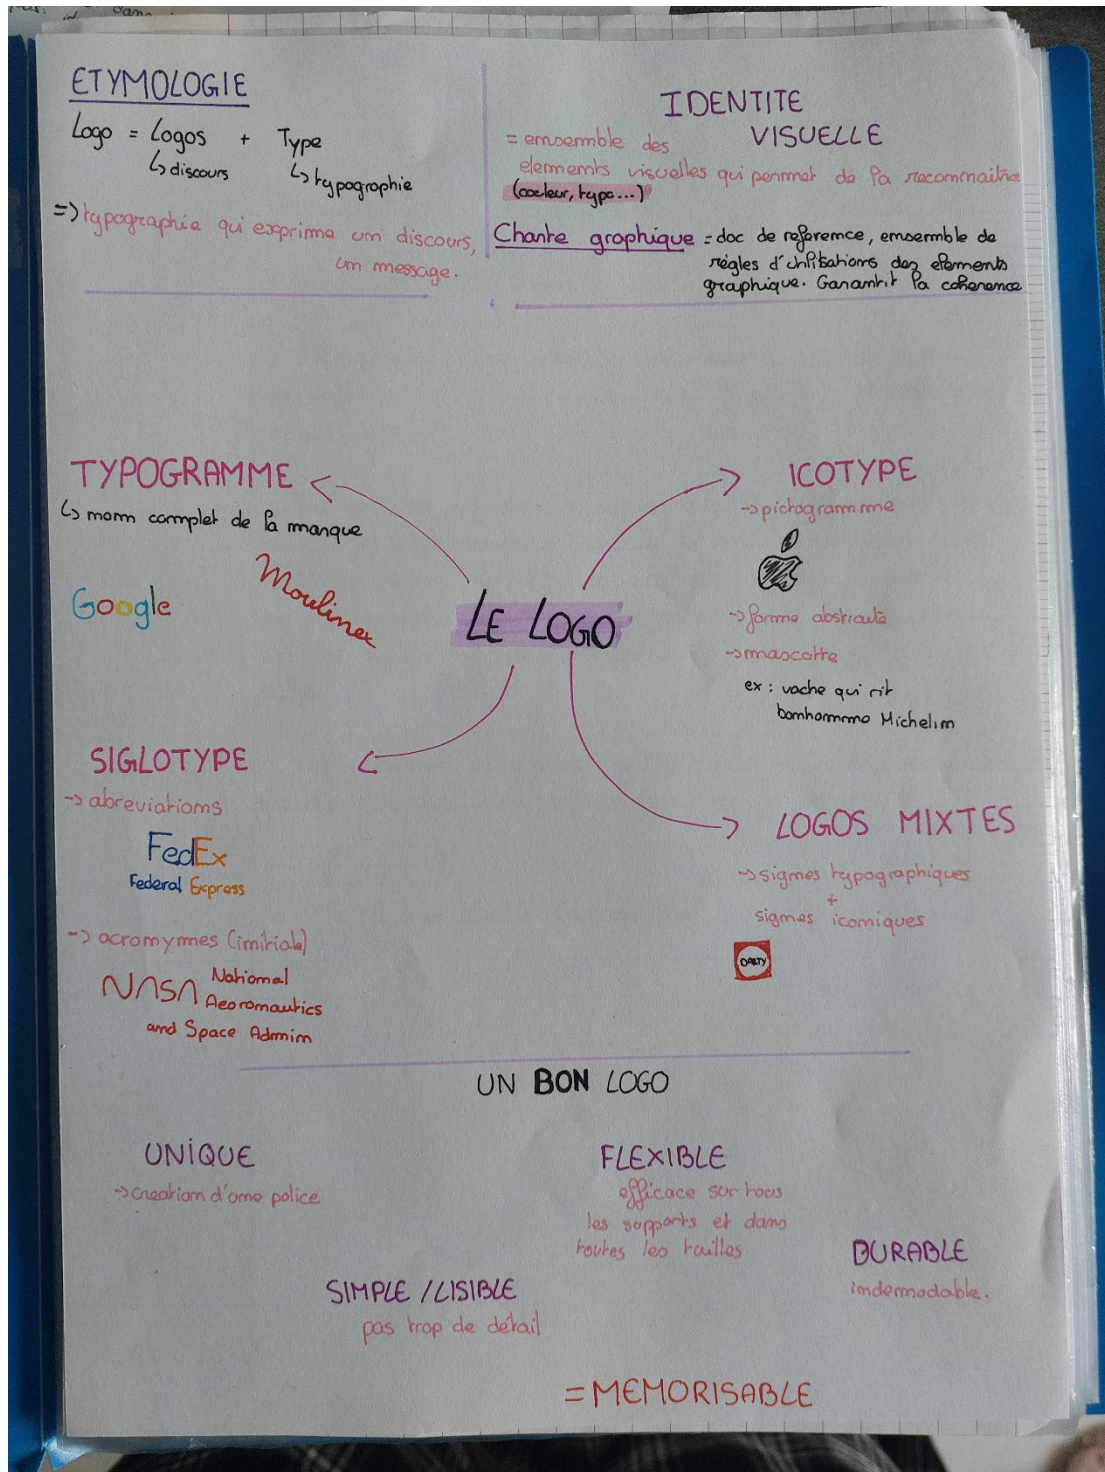 ETYMOLOGIE
Logo = Logos + Type
↳ discours ↳ typographie
=> typographie qui exprime un discours,
un message.
IDENTITE
VISUELLE
= ensemble des
elements visuelles qui permet de la reconnaitre
(couleur, typo...)
Charte graphique = doc de reference, ensemble de
règles d'utilisations des elements
graphique. Garantit la coherence
TYPOGRAMME
↳ nom complet de la marque
Google
Moulinex
ICOTYPE
-> pictogramme
-> forme abstraite
-> mascotte
ex : vache qui rit
bonhomme Michelin
LE LOGO
SIGLOTYPE
-> abreviations
FedEx
Federal Express
-> acronymes (initiale)
NASA National
Aeoronautics
and Space Admin
LOGOS MIXTES
-> signes typographiques
+
signes iconiques
DARTY
UN BON LOGO
UNIQUE
-> creation d'une police
FLEXIBLE
efficace sur tous
les supports et dans
toutes les tailles
DURABLE
indemodable.
SIMPLE / LISIBLE
pas trop de détail
= MEMORISABLE